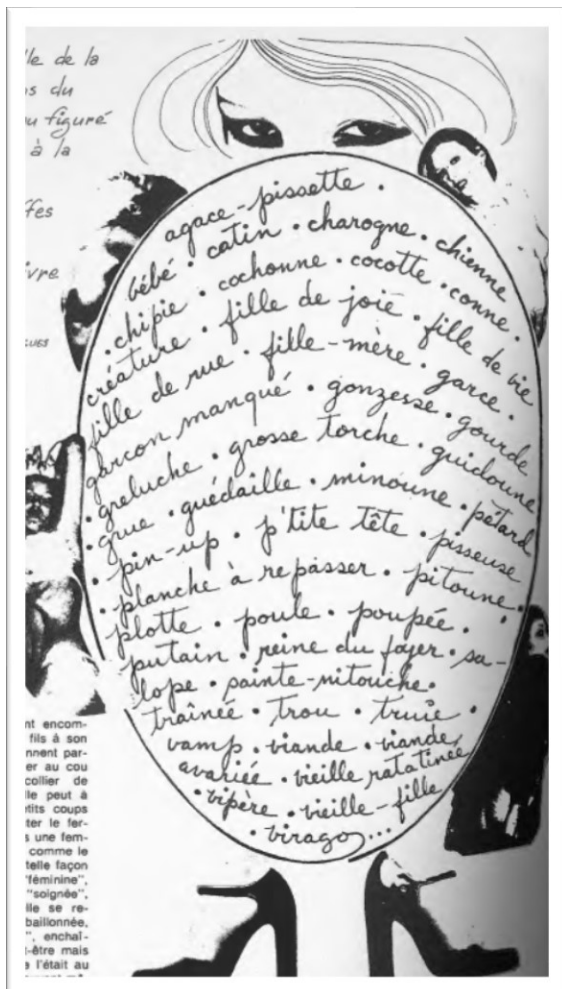 le de la
s du
u figuré
à la
ffes
ivre
agace-pissette.
bébé · catin · charogne · chienne
· chipie · cochonne · cocotte · conne ·
créature · fille de joie · fille de vie
fille de rue · fille-mère · garce ·
garçon manqué · gonzesse · gourde
· greluche · grosse torche · guidoune
· grue · guédaille · minoune · pétard
· pin-up · p'tite tête · pisseuse
· planche à repasser · pitoune ·
plotte · poule · poupée ·
putain · reine du foyer · sa-
lope · sainte-nitouche ·
traînée · trou · truie ·
vamp · viande · viande
avariée · vieille ratatinée
· vipère · vieille-fille
· virago...
nt encom-
fils à son
nnent par-
er au cou
collier de
lle peut à
tits coups
ter le fer-
s une fem-
comme le
telle façon
"féminine",
"soignée",
lle se re-
baillonnée,
", enchaî-
t-être mais
e l'était au